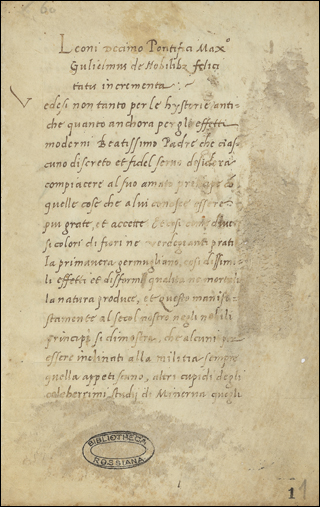 Leoni Decimo Pontifici Maxº
Gulielmus de Nobilibz felici
tatis incrementa
Vedesi non tanto per le hystorie anti-
che quanto anchora per gli effetti
moderni Beatissimo Padre che cias-
cuno discreto et fidel servo desidera
compiacere al suo amato principe di
quelle cose che a lui conosce essere
piu grate, et accette
se colori di fiori ne verdegianti prati
la primavera germugliano, cosi dissimi-
li effetti et disforme qualita ne mortali
la natura produce, et questo manife-
stamente al secol nostro negli nobili
principi si dimostra, che alcuni
essere inclinati alla militia sempre
quella appetiscano, altri cupidi degli
celeberrimi studij di Minerva quegli
BIBLIOTHECA
ROSSIANA
1
1